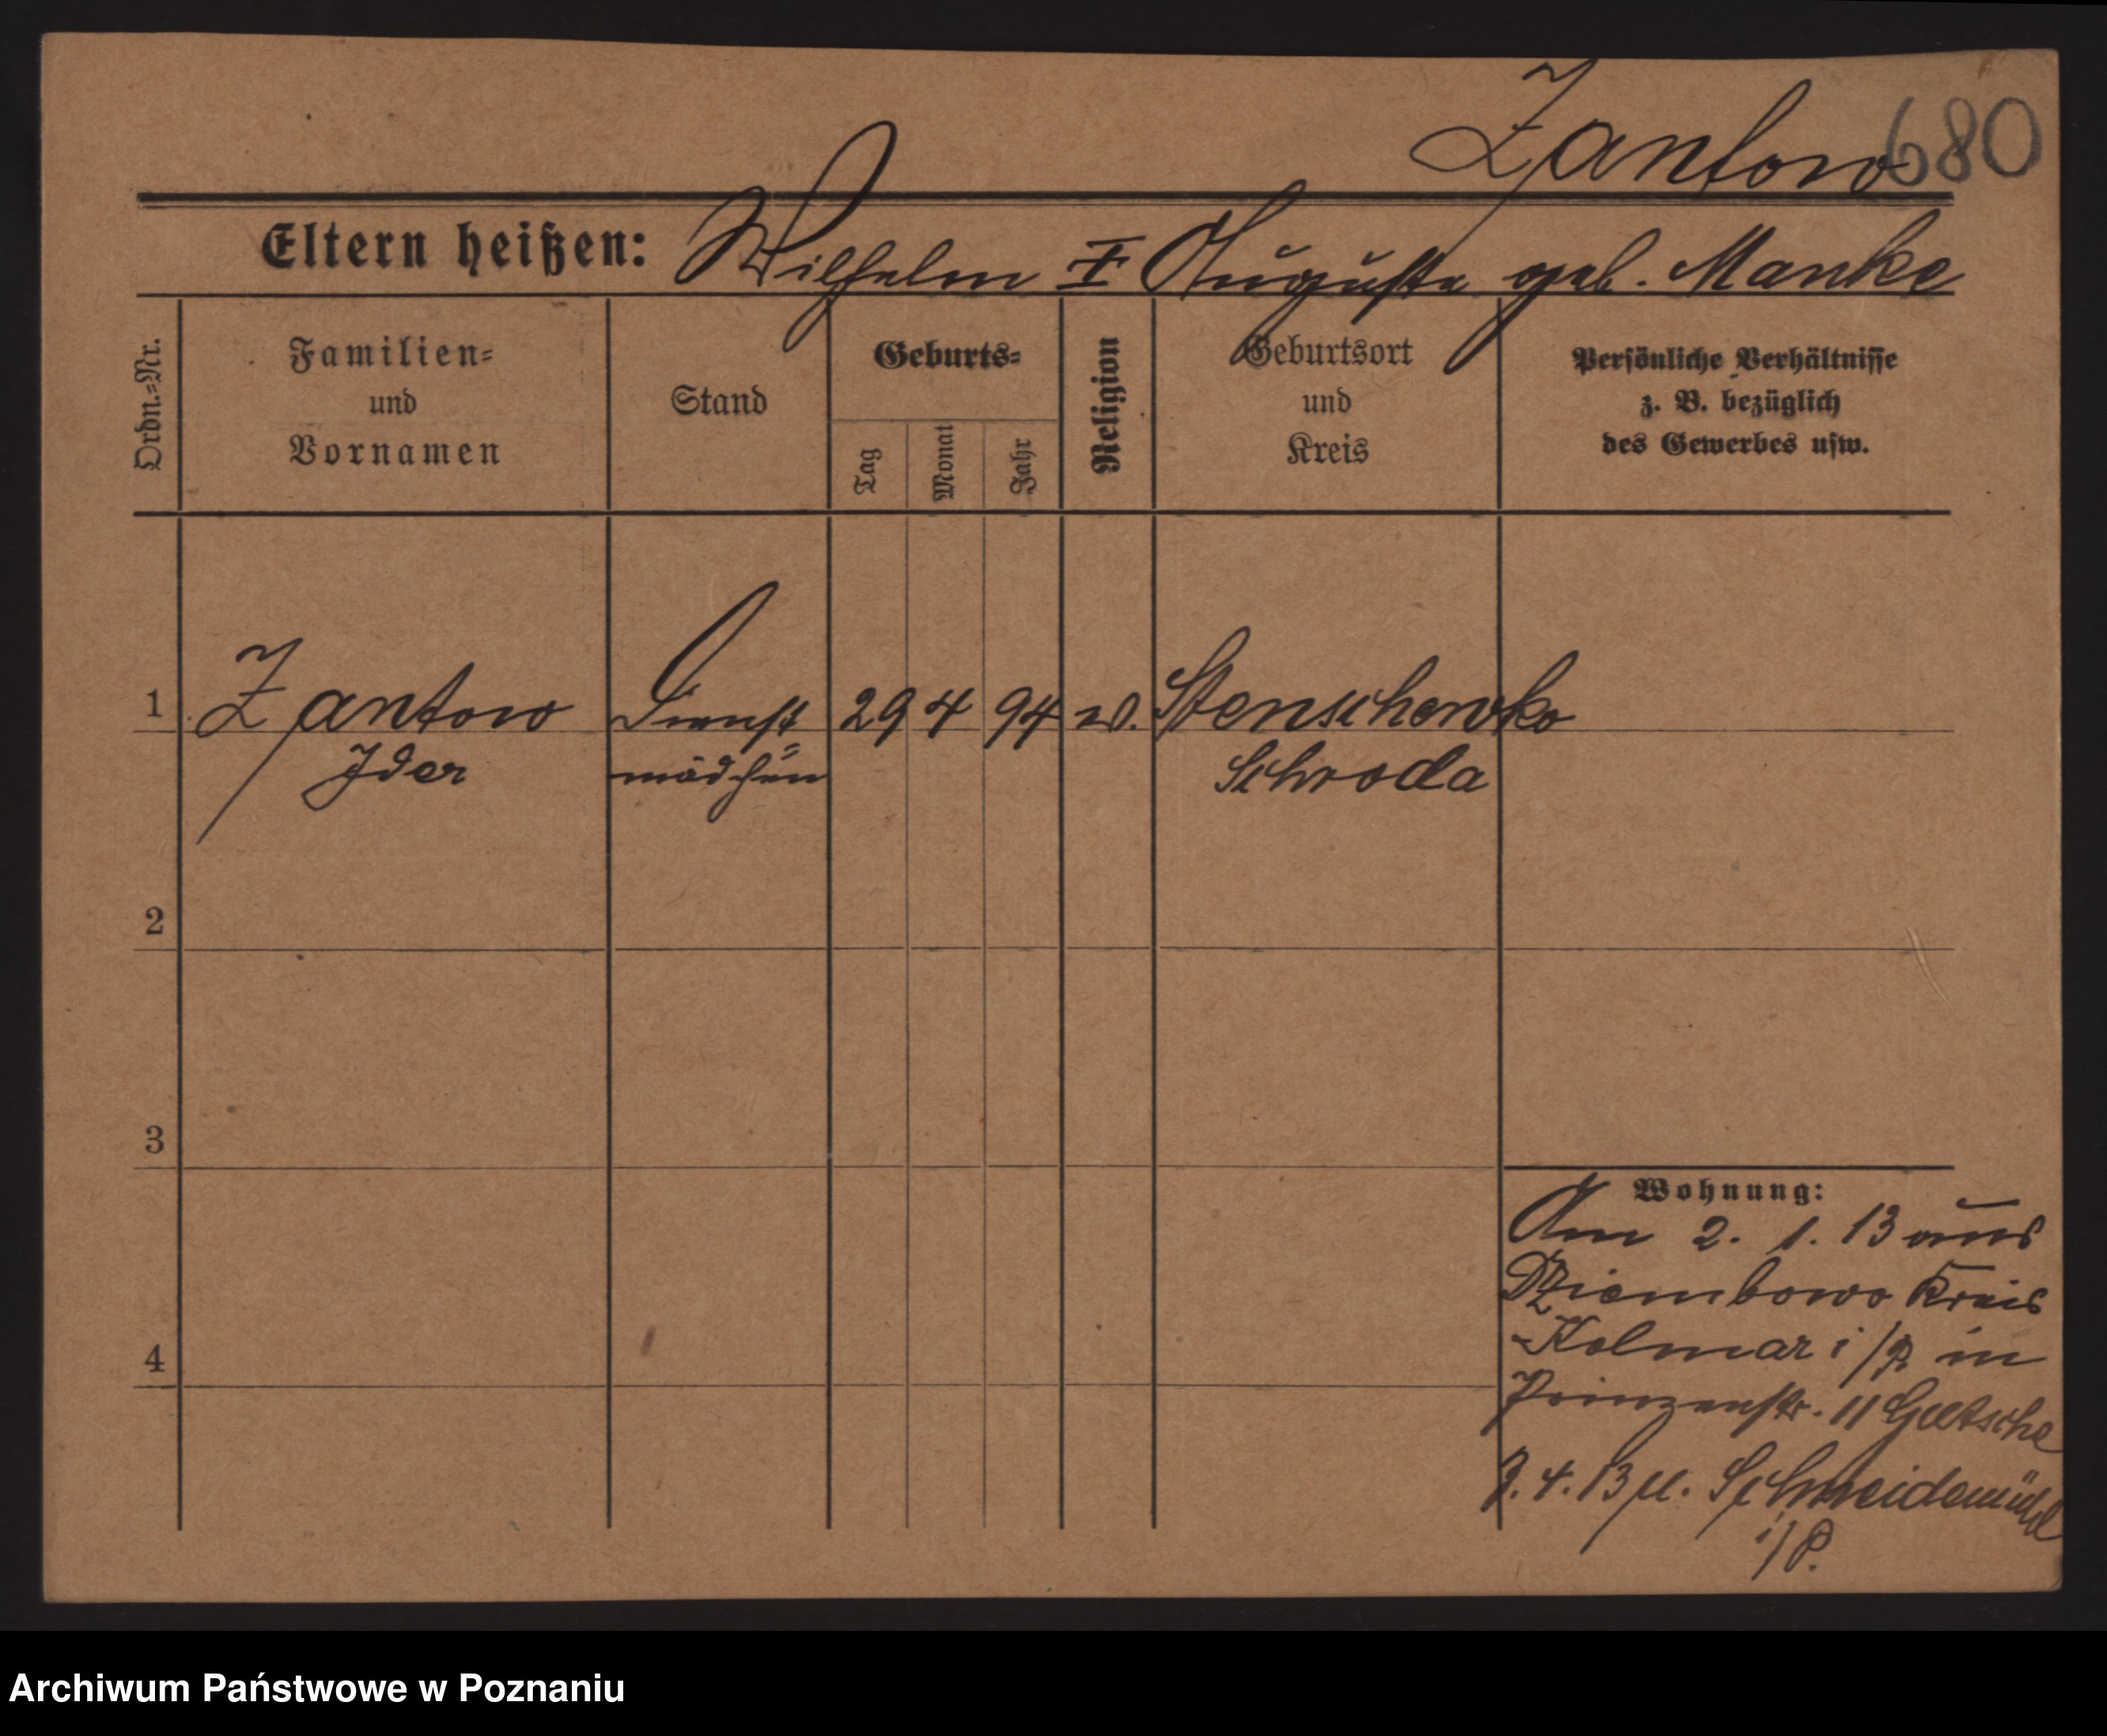 Zantow 680
Eltern heißen: Wilhelm I Auguste geb. Manke
Ordn.=Nr.
Familien=
und
Vornamen
Stand
Geburts=
Tag
Monat
Jahr
Religion
Geburtsort
und
Kreis
Persönliche Verhältnisse
z. B. bezüglich
des Gewerbes usw.
1 Zantow Dienst 29 4 94 ev. Stenschewko
Ida mädchen Schroda
2
3
4
Wohnung:
Am 2. 1. 13 aus
Dziembowo Kreis
Kolmar i/P. in
Prinzenstr. 11
4. 13 Schneidemühl
i/P.
Archiwum Państwowe w Poznaniu